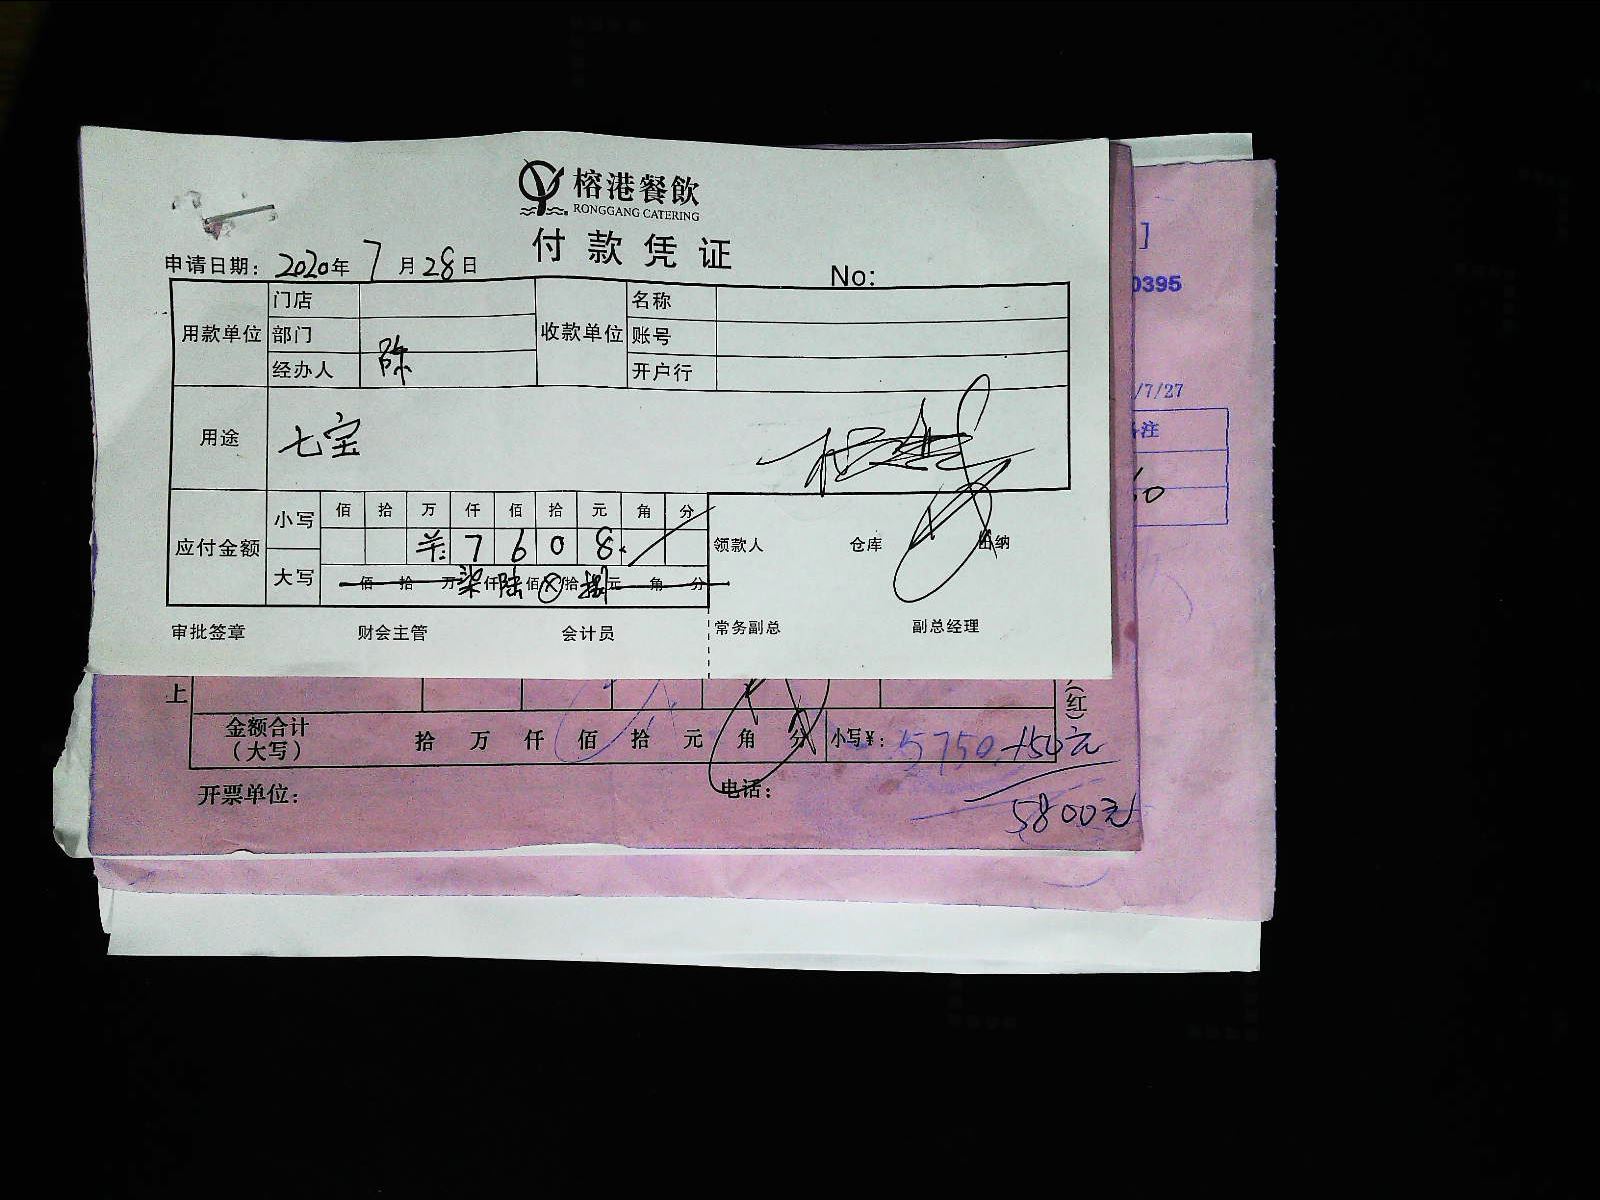 榕港餐飲
RONGGANG CATERING
付款凭证
申请日期: 2020年 7 月 28 日 No:
用款单位 门店 收款单位 名称
部门 账号
经办人 陈 开户行
用途 七宝
应付金额 小写 佰 拾 万 仟 佰 拾 元 角 分
7 6 0 8
领款人 仓库 出纳
大写 佰 拾 万 柒 仟 陆 佰 ⊗ 拾 捌 元 角 分
审批签章 财会主管 会计员 常务副总 副总经理
]
0395
/7/27
注
上
(红)
金额合计
(大写) 拾 万 仟 佰 拾 元 角 分 小写¥: 5750+50元
开票单位: 电话:
5800元